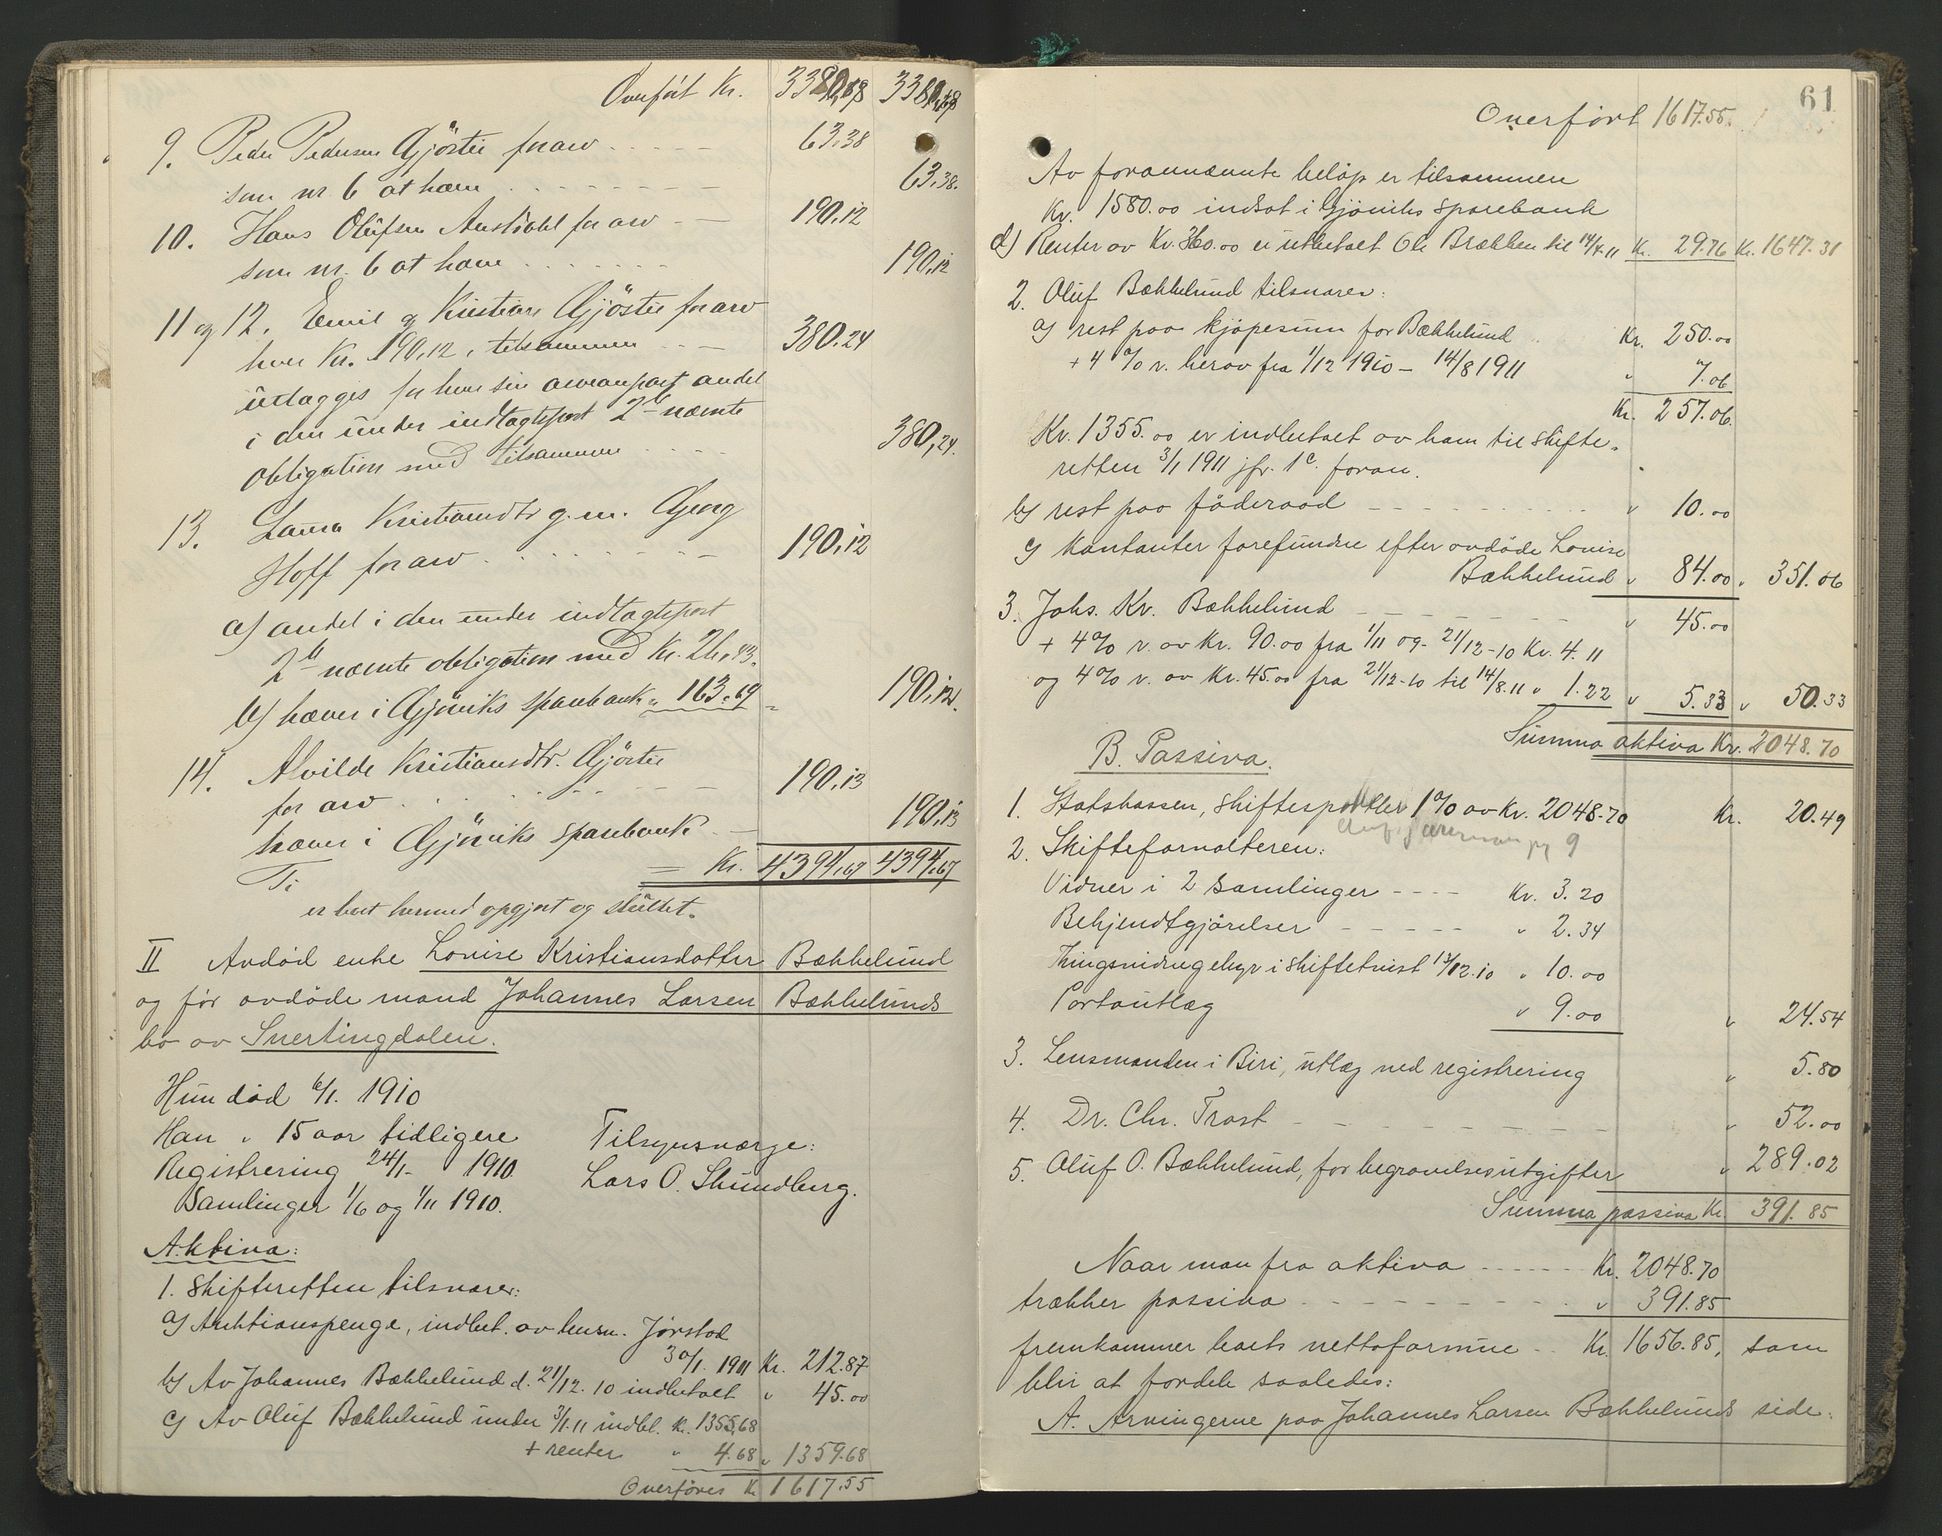 Overført Kr. 3380,68 3380,68
9. Peder Pedersen Gjøstei for arv 63,38
som nr. 6 at hæve 63,38.
10. Hans Olufsen for arv 190,12
som nr. 6 at hæve 190,12
11 og 12. Emil og Kristian Gjøstei for arv
hver Kr. 190,12, tilsammen 380,24
utlægges for hver sin arveanpart andel
i den under indtægtspost 2 nævnte
obligation med tilsammen 380,24.
13. Laura Kristiansdtr g.m. Georg
Hoff for arv 190,12
a) andel i den under indtægtspost
2 nævnte obligation med Kr. 26,43.
b) hæver i Gjøviks sparebank " 163,69 = 190,12.
14. Alvilde Kristiansdtr. Gjøstei
for arv 190,13
hæver i Gjøviks sparebank 190,13
= Kr. 4394,67 4394,67
Ti
er boet hermed opgjort og sluttet.
II Avdød enke Lovise Kristiansdatter Bækkelund
og før avdøde mand Johannes Larsen Bækkelunds
bo av Snertingdalen.
Hun død 6/1. 1910
Han " 15 aar tidligere
Tilsynsværge:
Registrering 24/1- 1910
Lars O. Skundberg.
Samlinger 1/6 og 1/11 1910.
Aktiva:
1. Skifteretten tilsvarer:
a) Auktionspenge, indbet. av lensm. Jørstad
30/1. 1911 Kr. 212.87
b) Av Johannes Bækkelund d. 21/12. 10 indbetalt " 45.00
c) Av Oluf Bækkelund under 3/1.11 indbl. Kr. 1355,68
+ renter " 4.68 " 1359.68
Overføres Kr 1617.55
61
Overført 1617.55.
Av forannævnte beløp er tilsammen
Kr. 1580.00 indsat i Gjøviks sparebank
d) Renter av Kr. 360.00 er utbetalt O.h. Brækken til 14/7-11 Kr. 29.76 Kr. 1647.31
2. Oluf Bækkelund tilsvarer:
a) rest paa kjøpesum for Bækkelund Kr. 250.00
+ 4 % r. herav fra 1/12 1910 - 14/8 1911 " 7.06
Kr. 257.06.
Kr. 1355.00 er indbetalt av ham til skifte-
retten 3/1 1911 jfr. 1c. foran.
b) rest paa føderaad " 10.00
c) Kontanter forefundne efter avdøde Lovise
Bækkelund " 84.00 " 351.06
3. Johs. Kr. Bækkelund " 45.00
+ 4% r. av Kr. 90.00 fra 1/11 og - 21/12-10 Kr. 4.11
og 4% r. av Kr. 45.00 fra 21/12-10 til 14/8.11 " 1.22 " 5.33 " 50.33
Summa aktiva Kr. 2048.70
B. Passiva.
1. Statskassen, skiftesportler 1% av Kr. 2048.70 Kr. 20.49
2. Skifteforvalteren:
Vidner i 2 samlinger Kr. 3.20
Bekjendtgjørelser " 2.34
Tingsvidnegebyr i skiftetvist 13/12.10 " 10.00
Portoutlæg " 9.00 " 24.54
3. Lensmanden i Biri, utlæg ved registrering " 5.80
4. Dr. Chr. Trost " 52.00
5. Oluf O. Bækkelund, for begravelsesutgifter " 289.02
Summa passiva Kr. 391.85
Naar man fra aktiva Kr. 2048.70
trækker passiva " 391.85
fremkommer boets nettoformue Kr. 1656.85, som
blir at fordele saaledes:
A. Arvingerne paa Johannes Larsen Bækkelunds side: